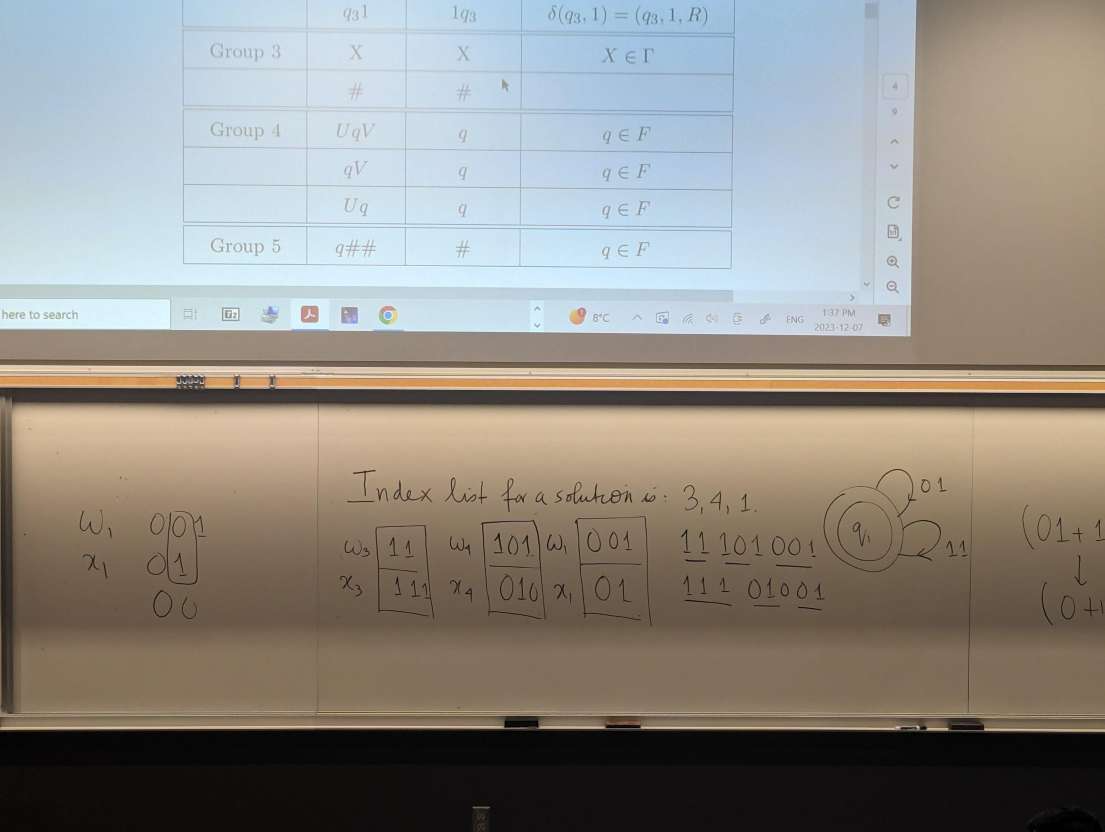 q₃1 1q₃ δ(q₃, 1) = (q₃, 1, R)
Group 3 X X X ∈ Γ
# #
Group 4 UqV q q ∈ F
qV q q ∈ F
Uq q q ∈ F
Group 5 q## # q ∈ F
4
9
here to search
8°C
ENG
1:37 PM
2023-12-07
Index list for a solution is: 3, 4, 1.
w₁ 001
x₁ 01
00
w₃ 11 w₄ 101 w₁ 001
x₃ 111 x₄ 010 x₁ 01
11 101 001
111 01001
q₁
01
11
(01+1
↓
(0+